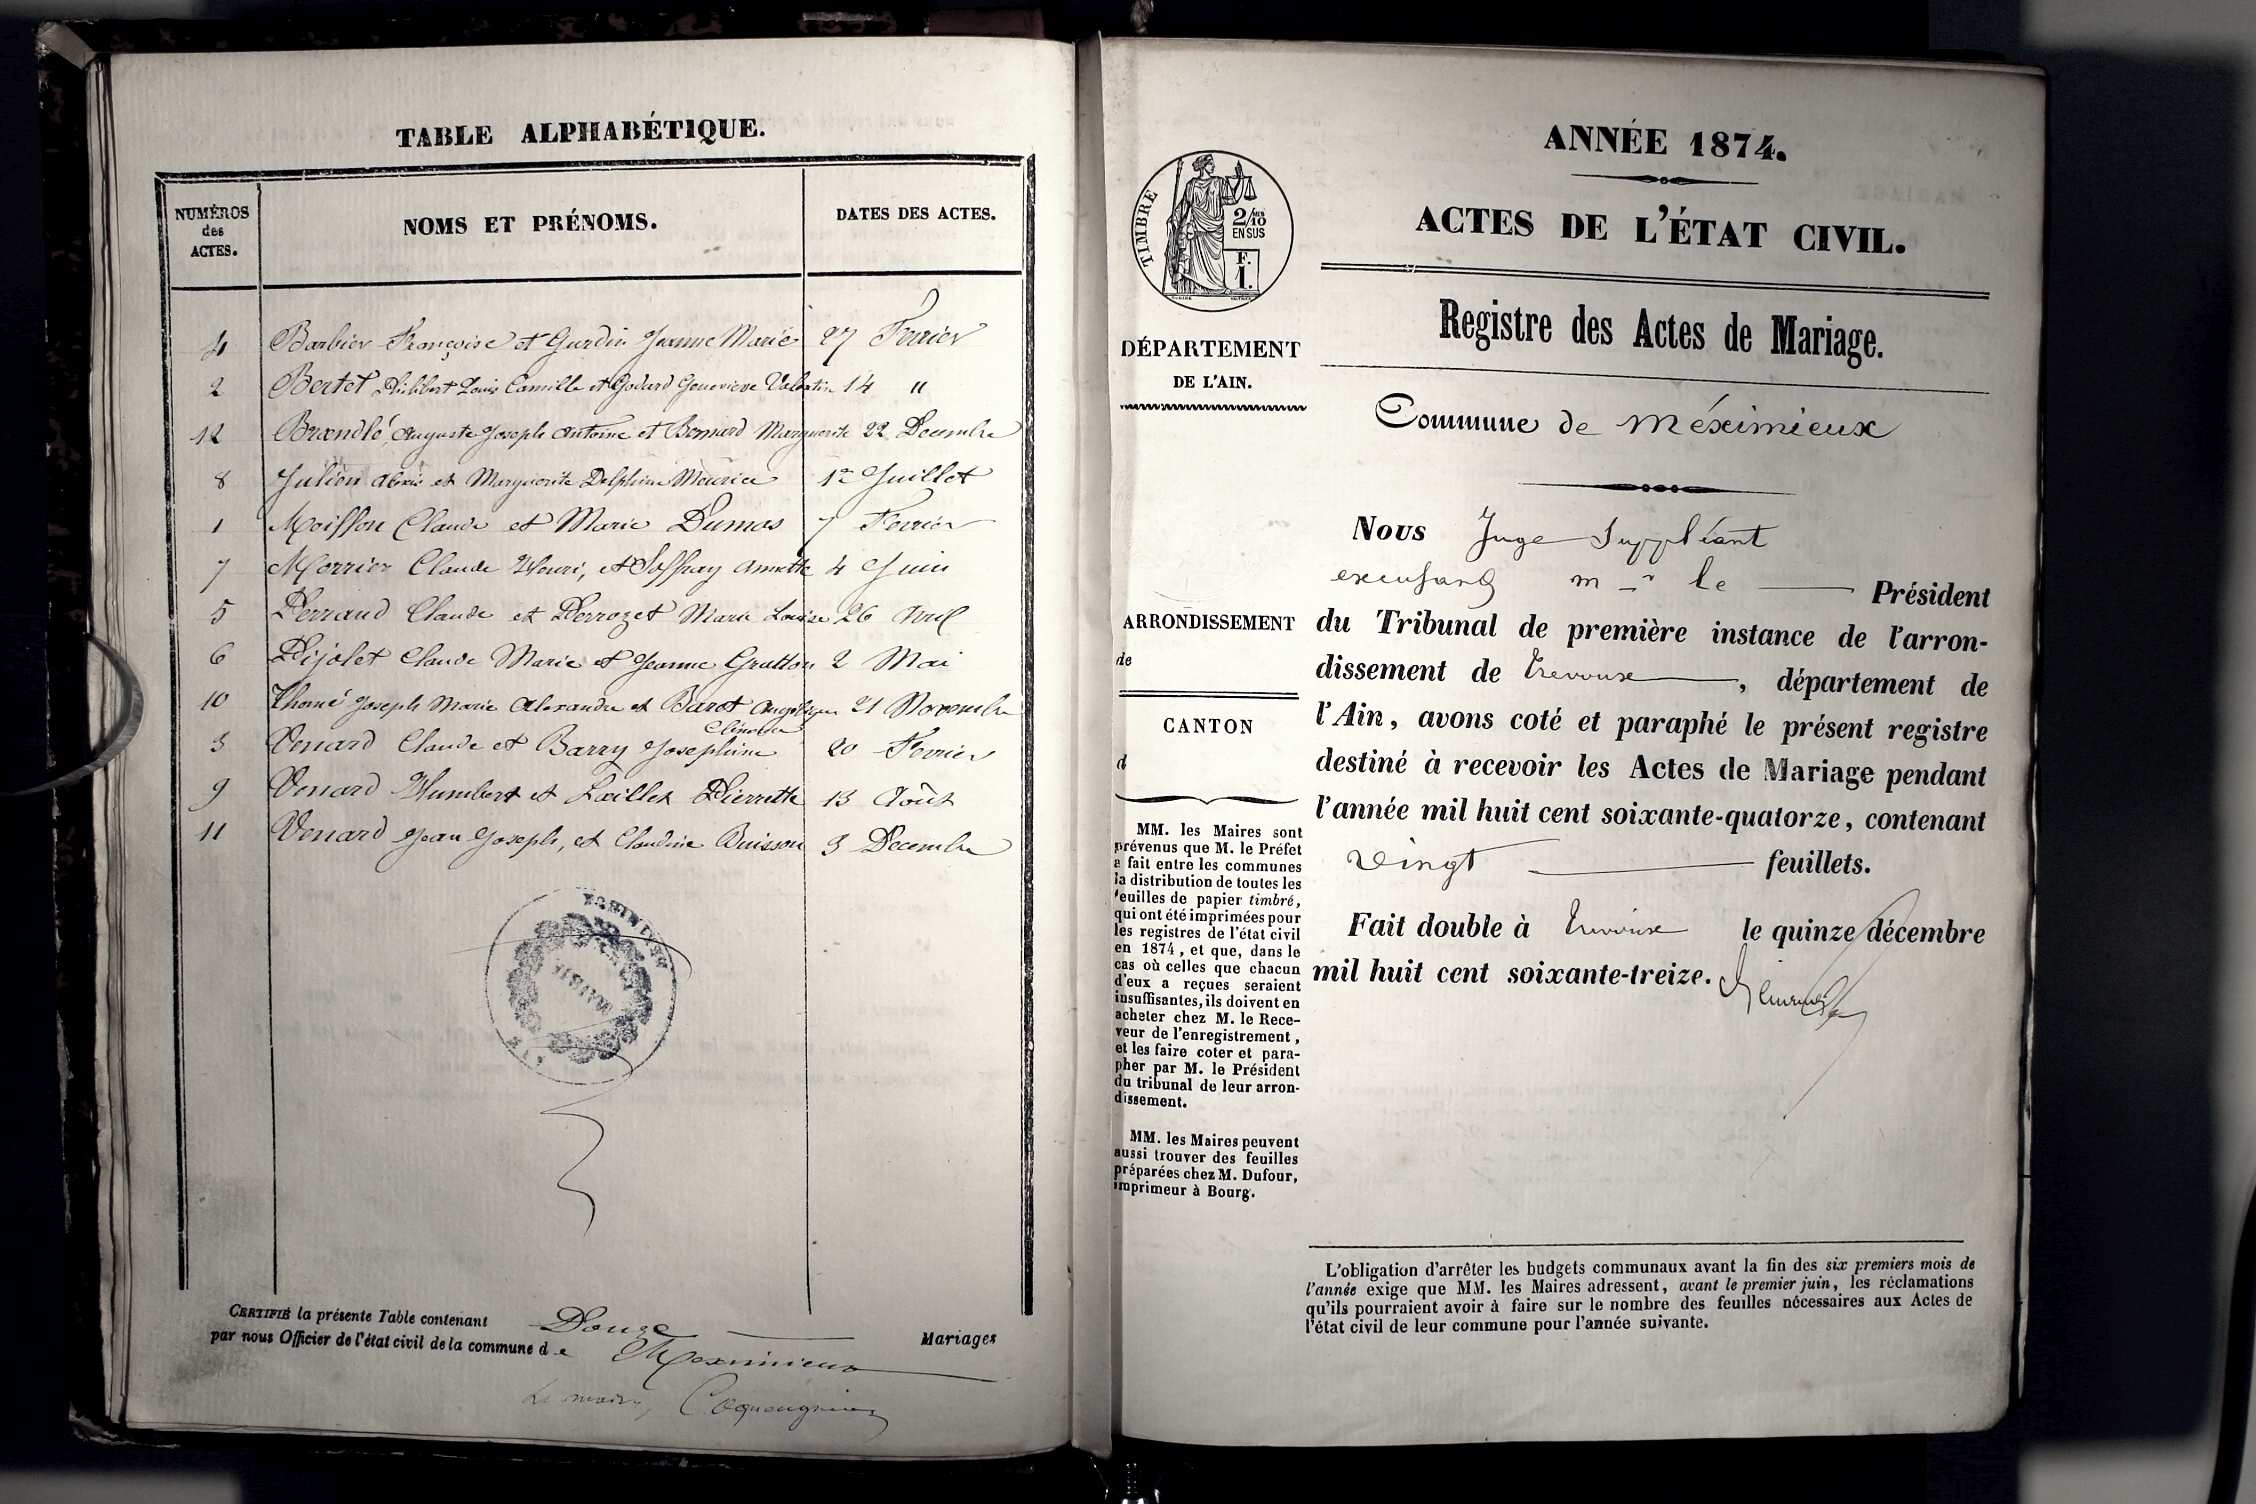 TABLE ALPHABÉTIQUE.
NUMÉROS des ACTES.
NOMS ET PRÉNOMS.
DATES DES ACTES.
4 Barbier Françoise et Gurdin Jeanne Marie 27 Février
2 Bertet Philibert Louis Camille et Godard Geneviève Valentin 14 "
12 Brændlé, Auguste Joseph Antoine et Bernard Marguerite 22 Décembre
8 Julien Alexis et Marguerite Delphine Meunier 1er Juillet
1 Moisson Claude et Marie Dumas 7 Février
7 Morrier Claude Henri, et Joffray Annette 4 Juin
5 Perraud Claude et Perrozet Marie Louise 26 Avril
6 Pijolet Claude Marie et Jeanne Gratton 2 Mai
10 Thomé Joseph Marie Alexandre et Barot 21 Novembre
3 Venard Claude et Barry Josephine 20 Février
9 Venard Humbert et Laillet Pierrette 13 Août
11 Venard Jean Joseph, et Claudine Buisson 3 Décembre
MAIRIE
CERTIFIÉ la présente Table contenant Douze Mariages
par nous Officier de l'état civil de la commune de Meximieux
Le maire,
ANNÉE 1874.
ACTES DE L'ÉTAT CIVIL.
Registre des Actes de Mariage.
TIMBRE
2/10 EN SUS
F. 1.
DÉPARTEMENT
DE L'AIN.
Commune de Méximieux
Nous Juge Suppléant
excusant mr le Président
du Tribunal de première instance de l'arron-
dissement de Trevoux, département de
l'Ain, avons coté et paraphé le présent registre
destiné à recevoir les Actes de Mariage pendant
l'année mil huit cent soixante-quatorze, contenant
vingt feuillets.
Fait double à Trevoux le quinze décembre
mil huit cent soixante-treize.
ARRONDISSEMENT
de
CANTON
d
MM. les Maires sont
prévenus que M. le Préfet
a fait entre les communes
la distribution de toutes les
feuilles de papier timbré,
qui ont été imprimées pour
les registres de l'état civil
en 1874, et que, dans le
cas où celles que chacun
d'eux a reçues seraient
insuffisantes, ils doivent en
acheter chez M. le Rece-
veur de l'enregistrement,
et les faire coter et para-
pher par M. le Président
du tribunal de leur arron-
dissement.
MM. les Maires peuvent
aussi trouver des feuilles
préparées chez M. Dufour,
imprimeur à Bourg.
L'obligation d'arrêter les budgets communaux avant la fin des six premiers mois de
l'année exige que MM. les Maires adressent, avant le premier juin, les réclamations
qu'ils pourraient avoir à faire sur le nombre des feuilles nécessaires aux Actes de
l'état civil de leur commune pour l'année suivante.